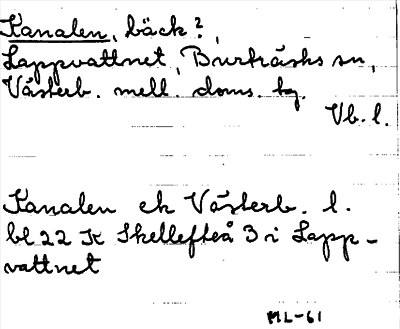 Kanalen, bäck?,
Lappvattnet, Burträsks sn,
Västerb. mell. doms. tg.
Vb. l.
Kanalen ek Västerb. l.
bl 22 K Skellefteå 3 i Lapp-
vattnet
ML-61